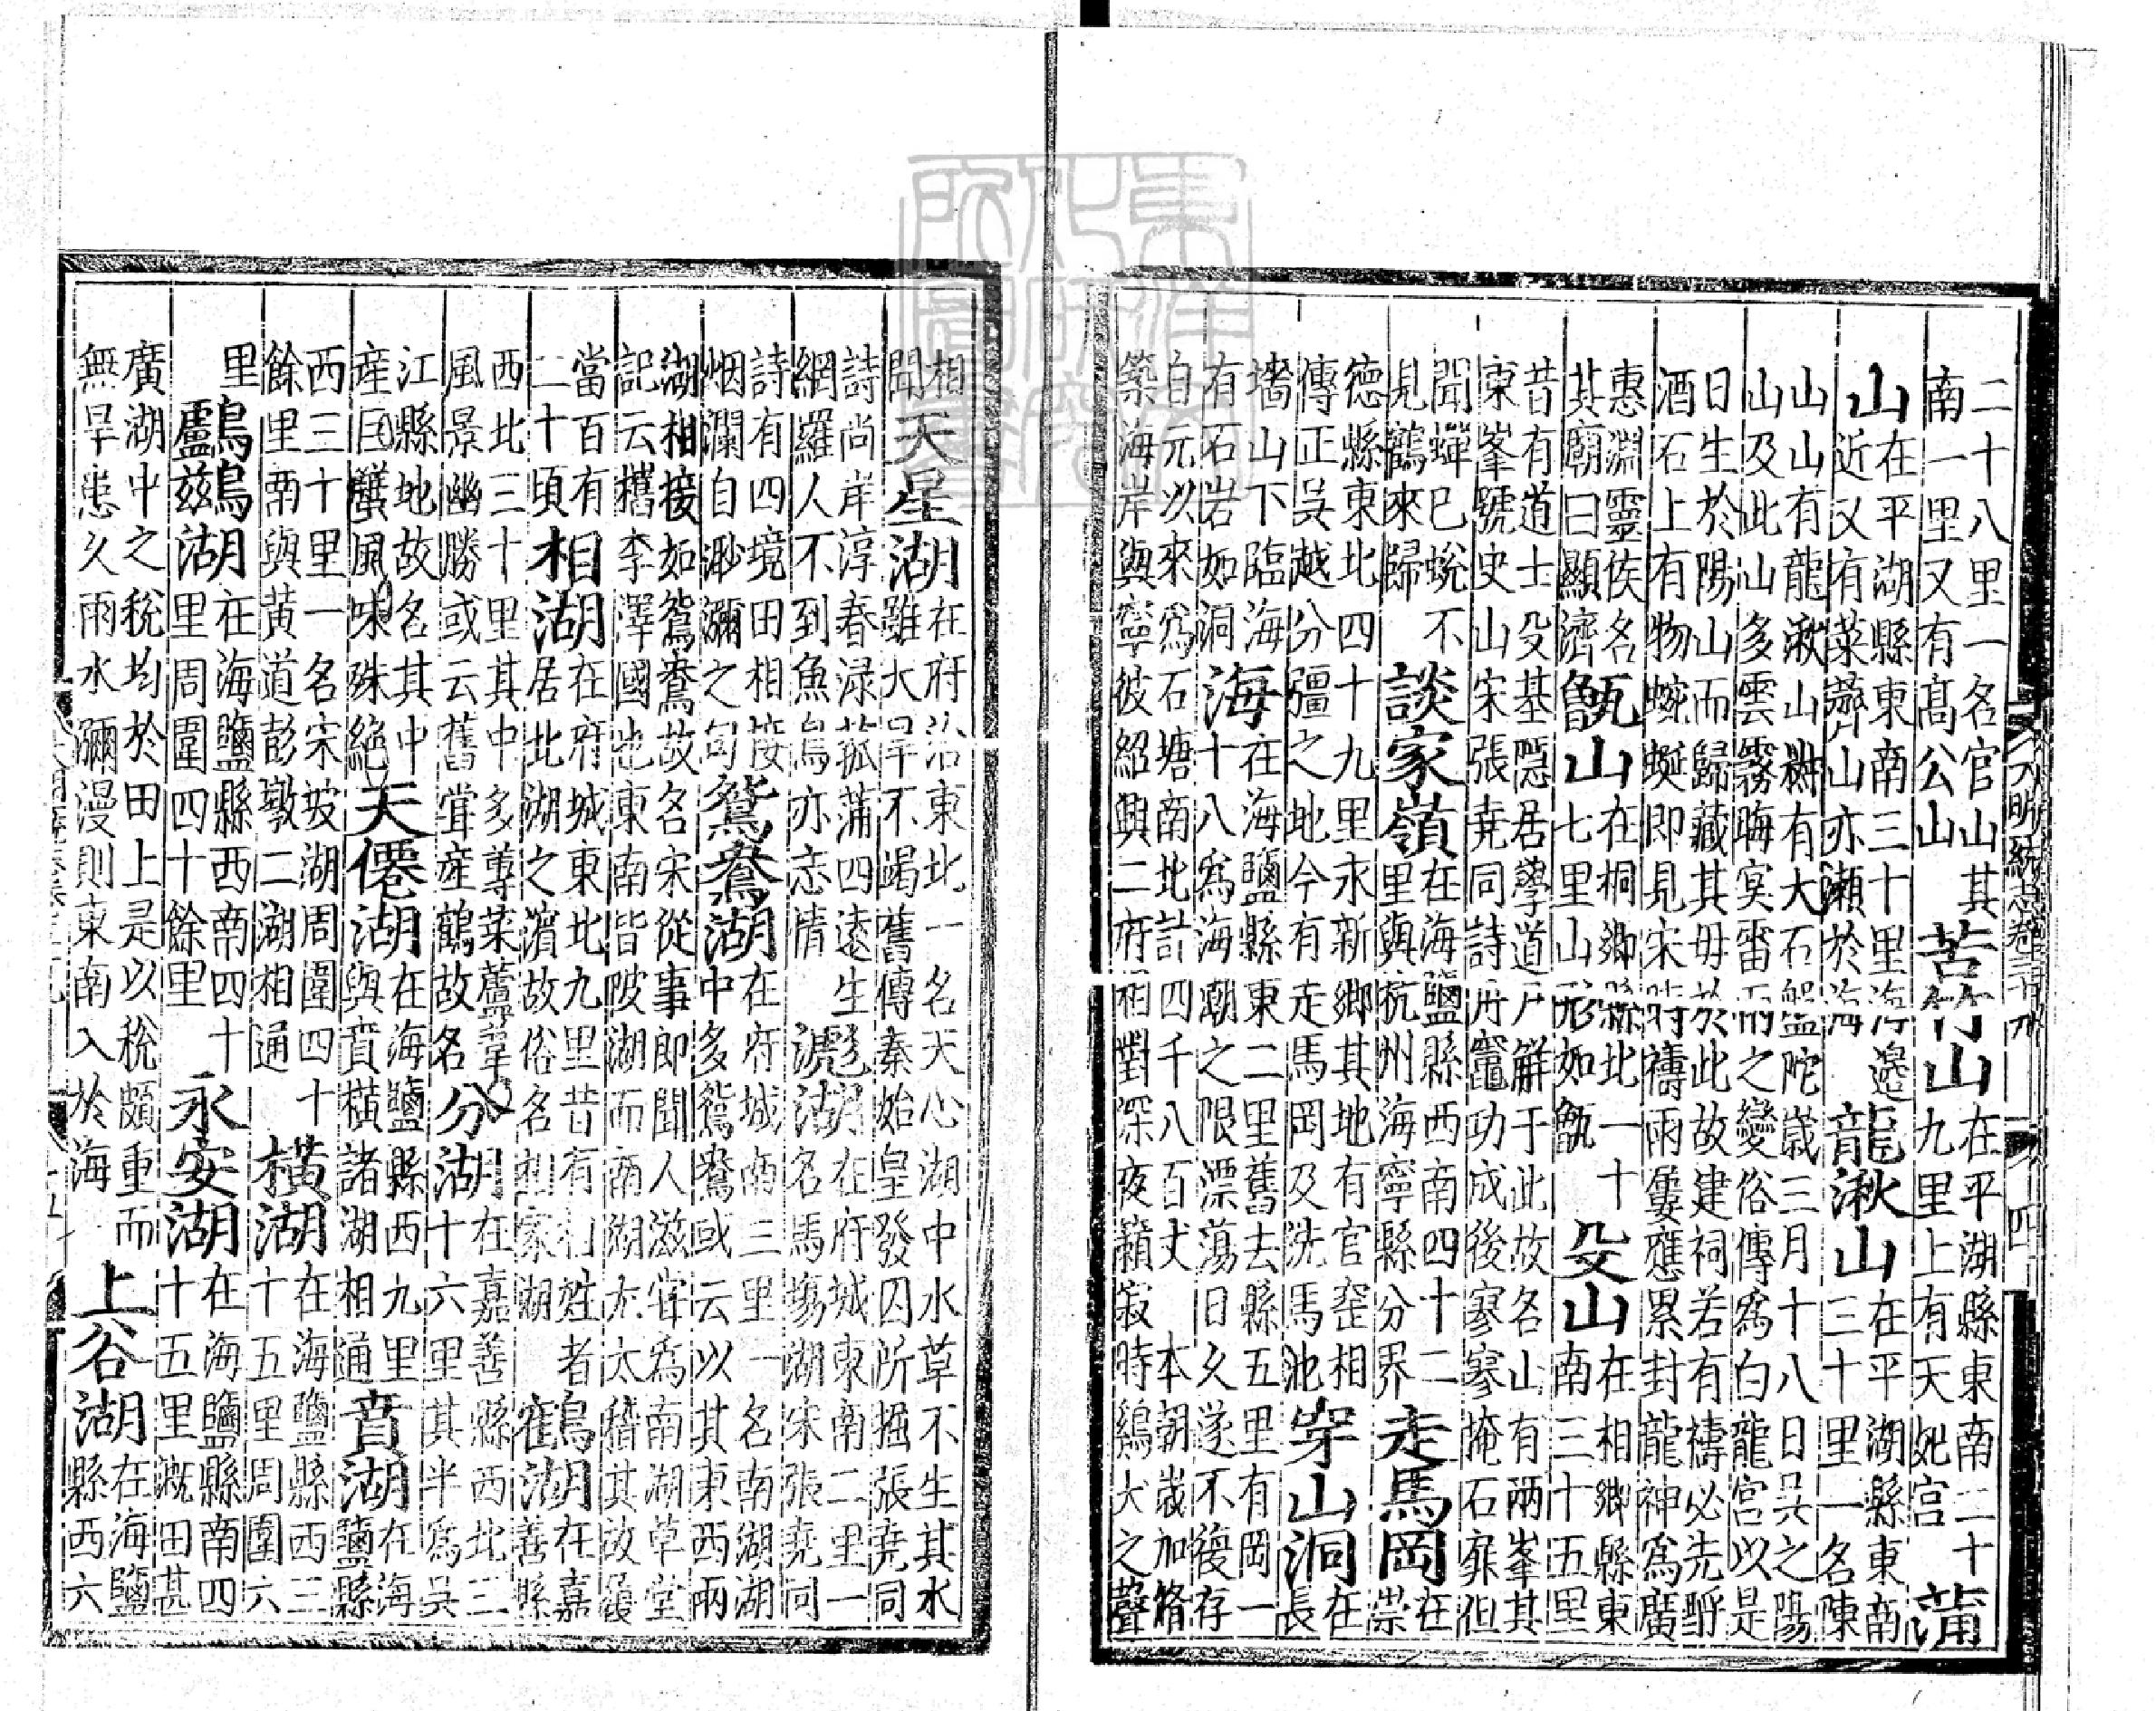 二十八里一名官山其南一里又有高公山 苦竹山在平湖縣東南二十九里上有天妃宮 蒲
山在平湖縣東南三十里海邊近又有菜薺山亦瀕於海 龍湫山在平湖縣東南三十里一名陳
山山有龍湫山湫有大石盤陀歲三月十八日吳之陽山及此山多雲霧晦冥雷雨之變俗傳爲白龍宮以是
日生於陽山而歸藏其母於此故建祠若有禱必先酹酒石上有物蜿蜒即見宋時禱雨屢應累封龍神爲廣
惠淵靈侯名其廟曰顯濟 甑山在桐鄉縣北一十七里山形如甑 殳山在相鄉縣東南三十五里
昔有道士殳基隱居學道尸解于此故名山有兩峯其東峯號史山宋張堯同詩丹竈功成後寥寥掩石扉但
聞蟬已蛻不見鶴來歸 談家嶺在海鹽縣西南四十二里與杭州海寧縣分界 走馬岡在崇
德縣東北四十九里永新鄉其地有官窑相傳正吳越分疆之地今有走馬岡及洗馬池 穿山洞在長
墻山下臨海有石岩如洞 海在海鹽縣東二里舊去縣五里有岡一十八爲海潮之限漂蕩日久遂不復存
自元以來爲石塘南北計四千八百丈 本朝歲加脩築海岸與寧彼紹興二府相對深夜籟寂時鷄犬之聲
大明一統志卷三十九
四
相聞 天星湖在府治東北一名天心湖中水草不生其水雖大旱不竭舊傳秦始皇發囚所掘張堯同
詩尚岸淳春淥菰蒲四遶生網羅人不到魚烏亦忘情 滮湖在府城東南二里一名馬塲湖宋張堯同
詩有四境田相接烟瀾自渺瀰之句 鴛鴦湖在府城南三里一名南湖湖中多鴛鴦或云以其東西兩
湖相接如鴛鴦故名宋從事即聞人滋嘗爲南湖草堂記云檇李澤國也東南皆陂湖而南湖尤大稽其故履
當百有二十頃 相湖在府城東北九里昔有相姓者居北湖之濱故俗名相家湖 鶴湖在嘉善縣
西北三十里其中多蓴菜蘆葦風景幽勝或云舊嘗産鶴故名 分湖在嘉善縣西北三十六里其半爲吳
江縣地故名其中産巨蟹風味殊絶 天僊湖在海鹽縣西九里與賁橫諸湖相通 賁湖在海鹽縣
西三十里一名宋坡湖周圍四十餘里南與黃道彭墩二湖相通 橫湖在海鹽縣西三十五里周圍六
里 鸕鷀湖在海鹽縣西南四十里周圍四十餘里 永安湖在海鹽縣南四十五里漑田甚
廣湖中之稅均於田上是以稅頗重而無旱患久雨水瀰漫則東南入於海 上谷湖在海鹽縣西六